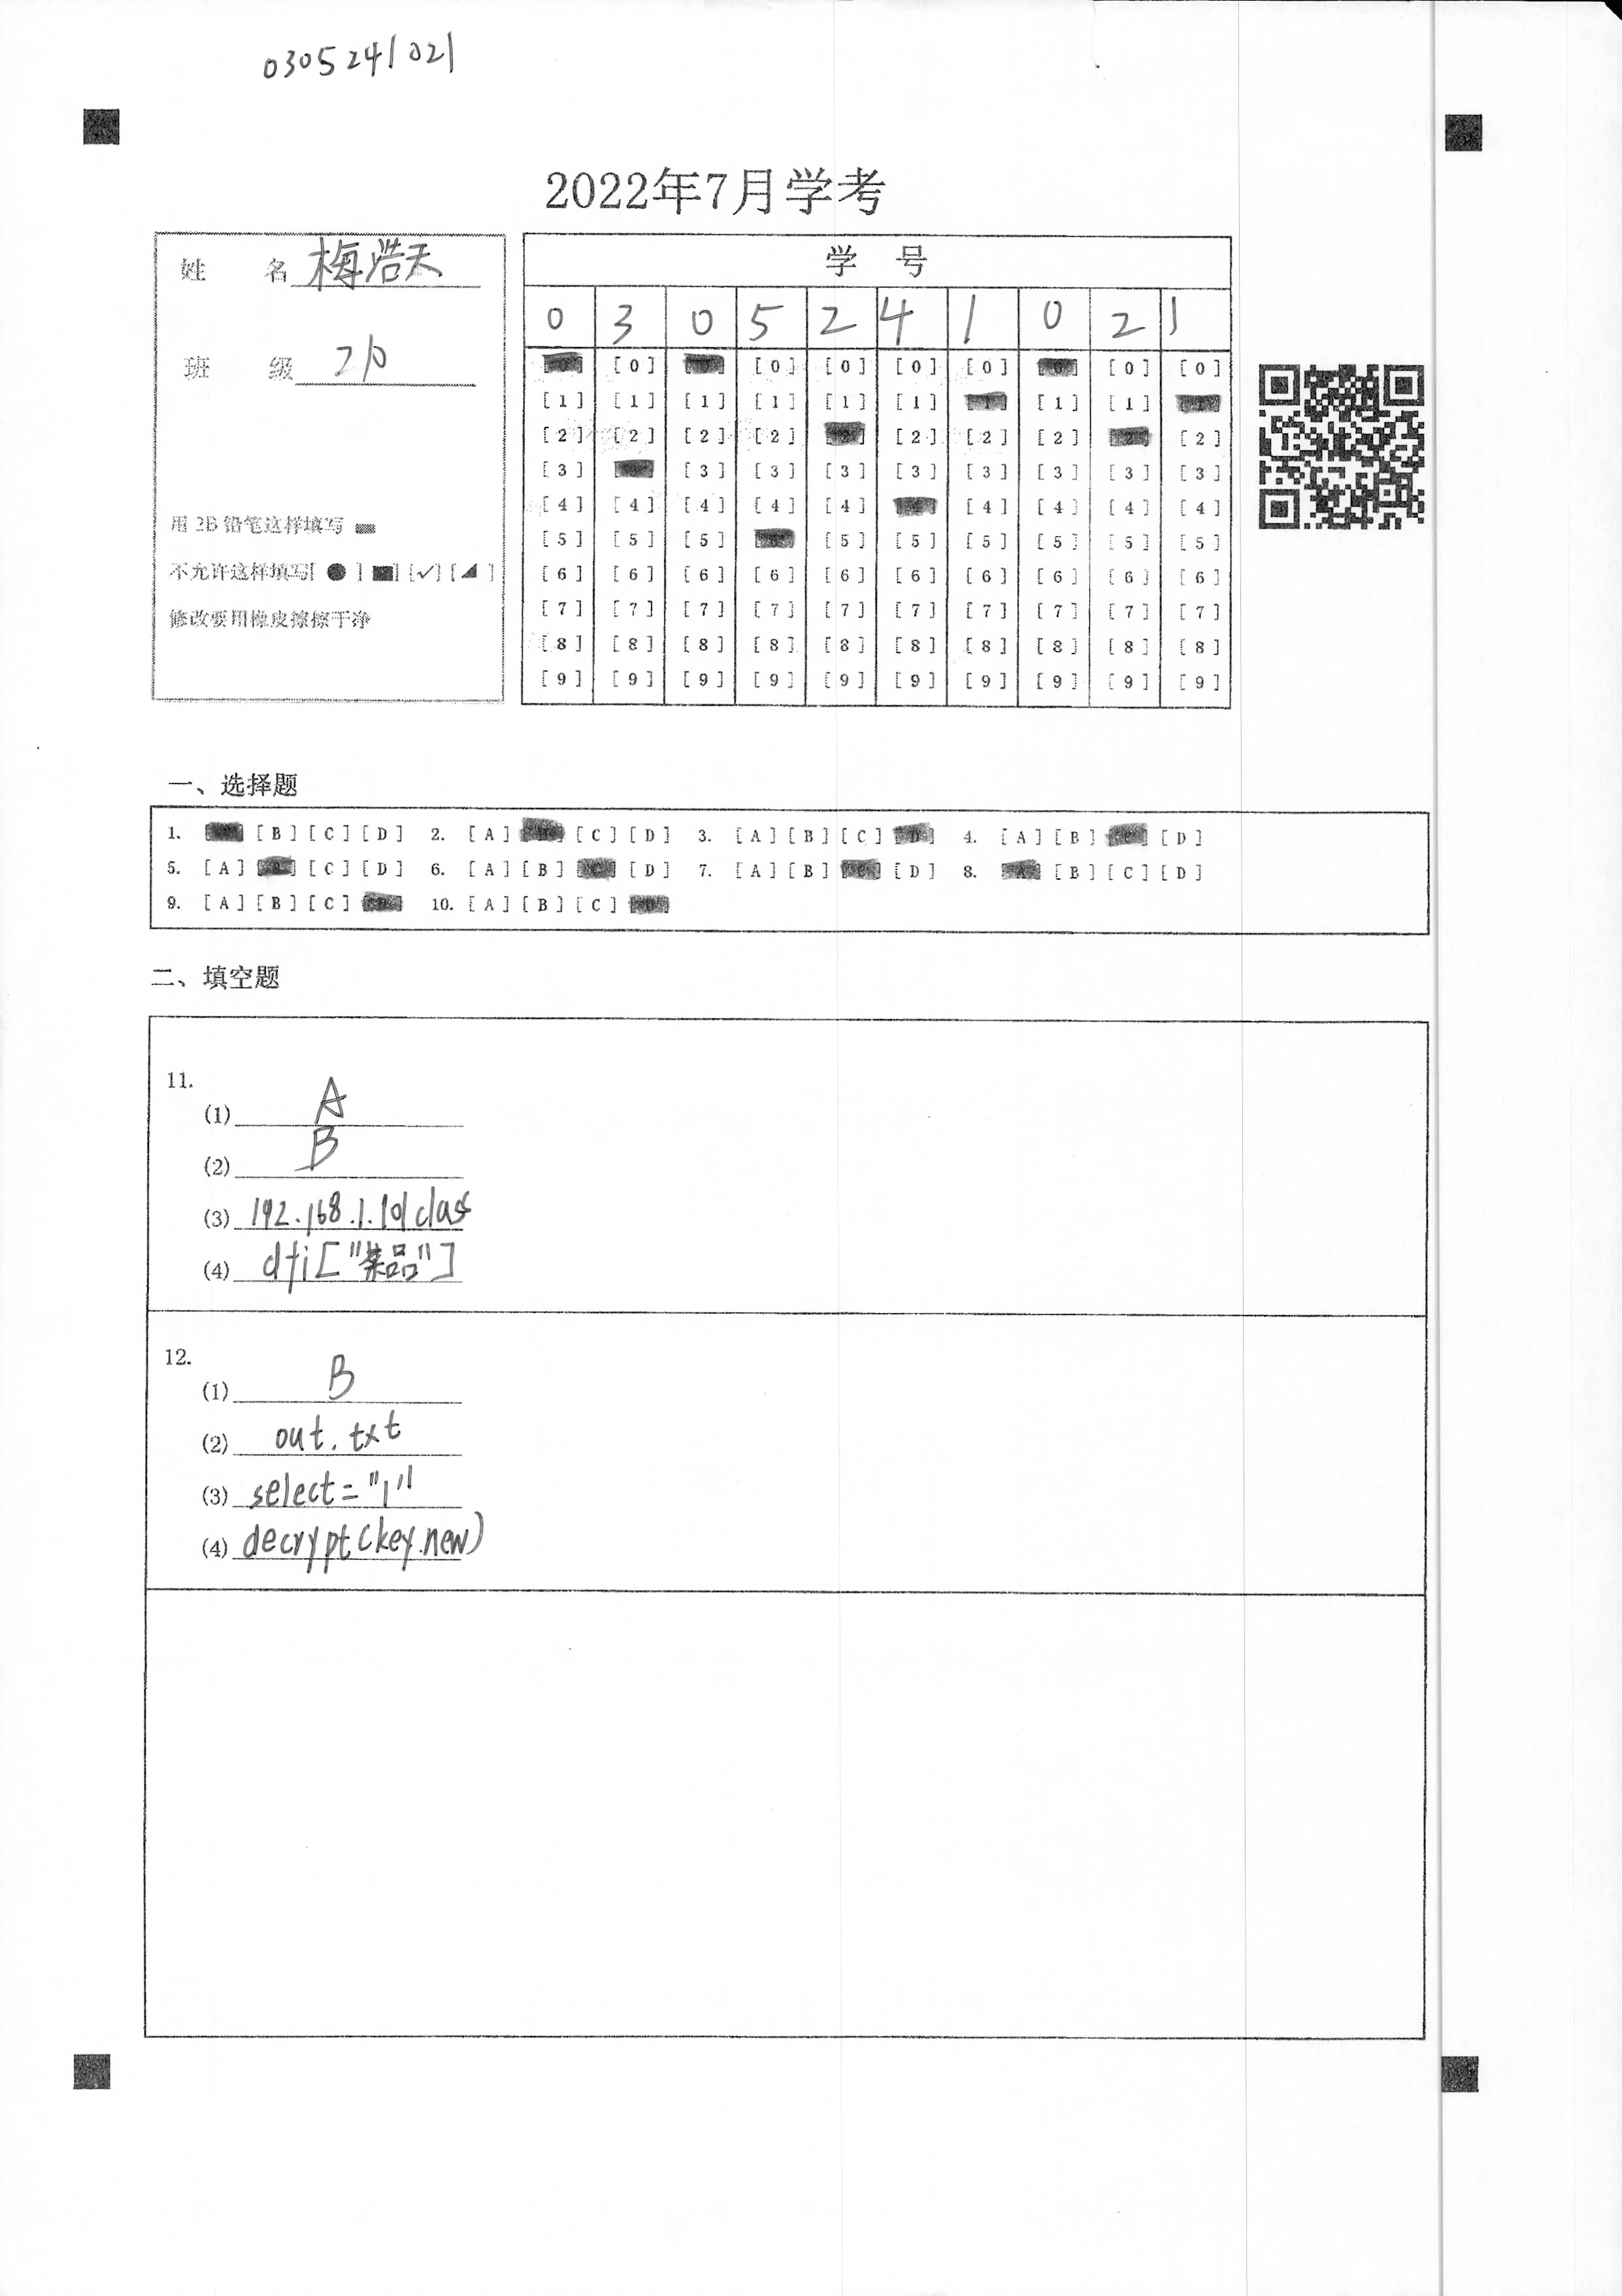 0305241021
2022年7月学考
姓 名 梅浩天
班 级 210
用 2B 铅笔这样填写
不允许这样填写[ ● ] [■] [✓] [◢ ]
修改要用橡皮擦擦干净
学 号
0 3 0 5 2 4 1 0 2 1
[0] [0] [0] [0] [0] [0] [0]
[1] [1] [1] [1] [1] [1] [1] [1]
[2] [2] [2] [2] [2] [2] [2] [2]
[3] [3] [3] [3] [3] [3] [3] [3] [3]
[4] [4] [4] [4] [4] [4] [4] [4] [4]
[5] [5] [5] [5] [5] [5] [5] [5] [5]
[6] [6] [6] [6] [6] [6] [6] [6] [6] [6]
[7] [7] [7] [7] [7] [7] [7] [7] [7] [7]
[8] [8] [8] [8] [8] [8] [8] [8] [8] [8]
[9] [9] [9] [9] [9] [9] [9] [9] [9] [9]
一、选择题
1. [B] [C] [D] 2. [A] [C] [D] 3. [A] [B] [C] 4. [A] [B] [D]
5. [A] [C] [D] 6. [A] [B] [D] 7. [A] [B] [D] 8. [B] [C] [D]
9. [A] [B] [C] 10. [A] [B] [C]
二、填空题
11.
(1) A
(2) B
(3) 192.168.1.101class
(4) df1["菜品"]
12.
(1) B
(2) out.txt
(3) select="1"
(4) decrypt(key.new)